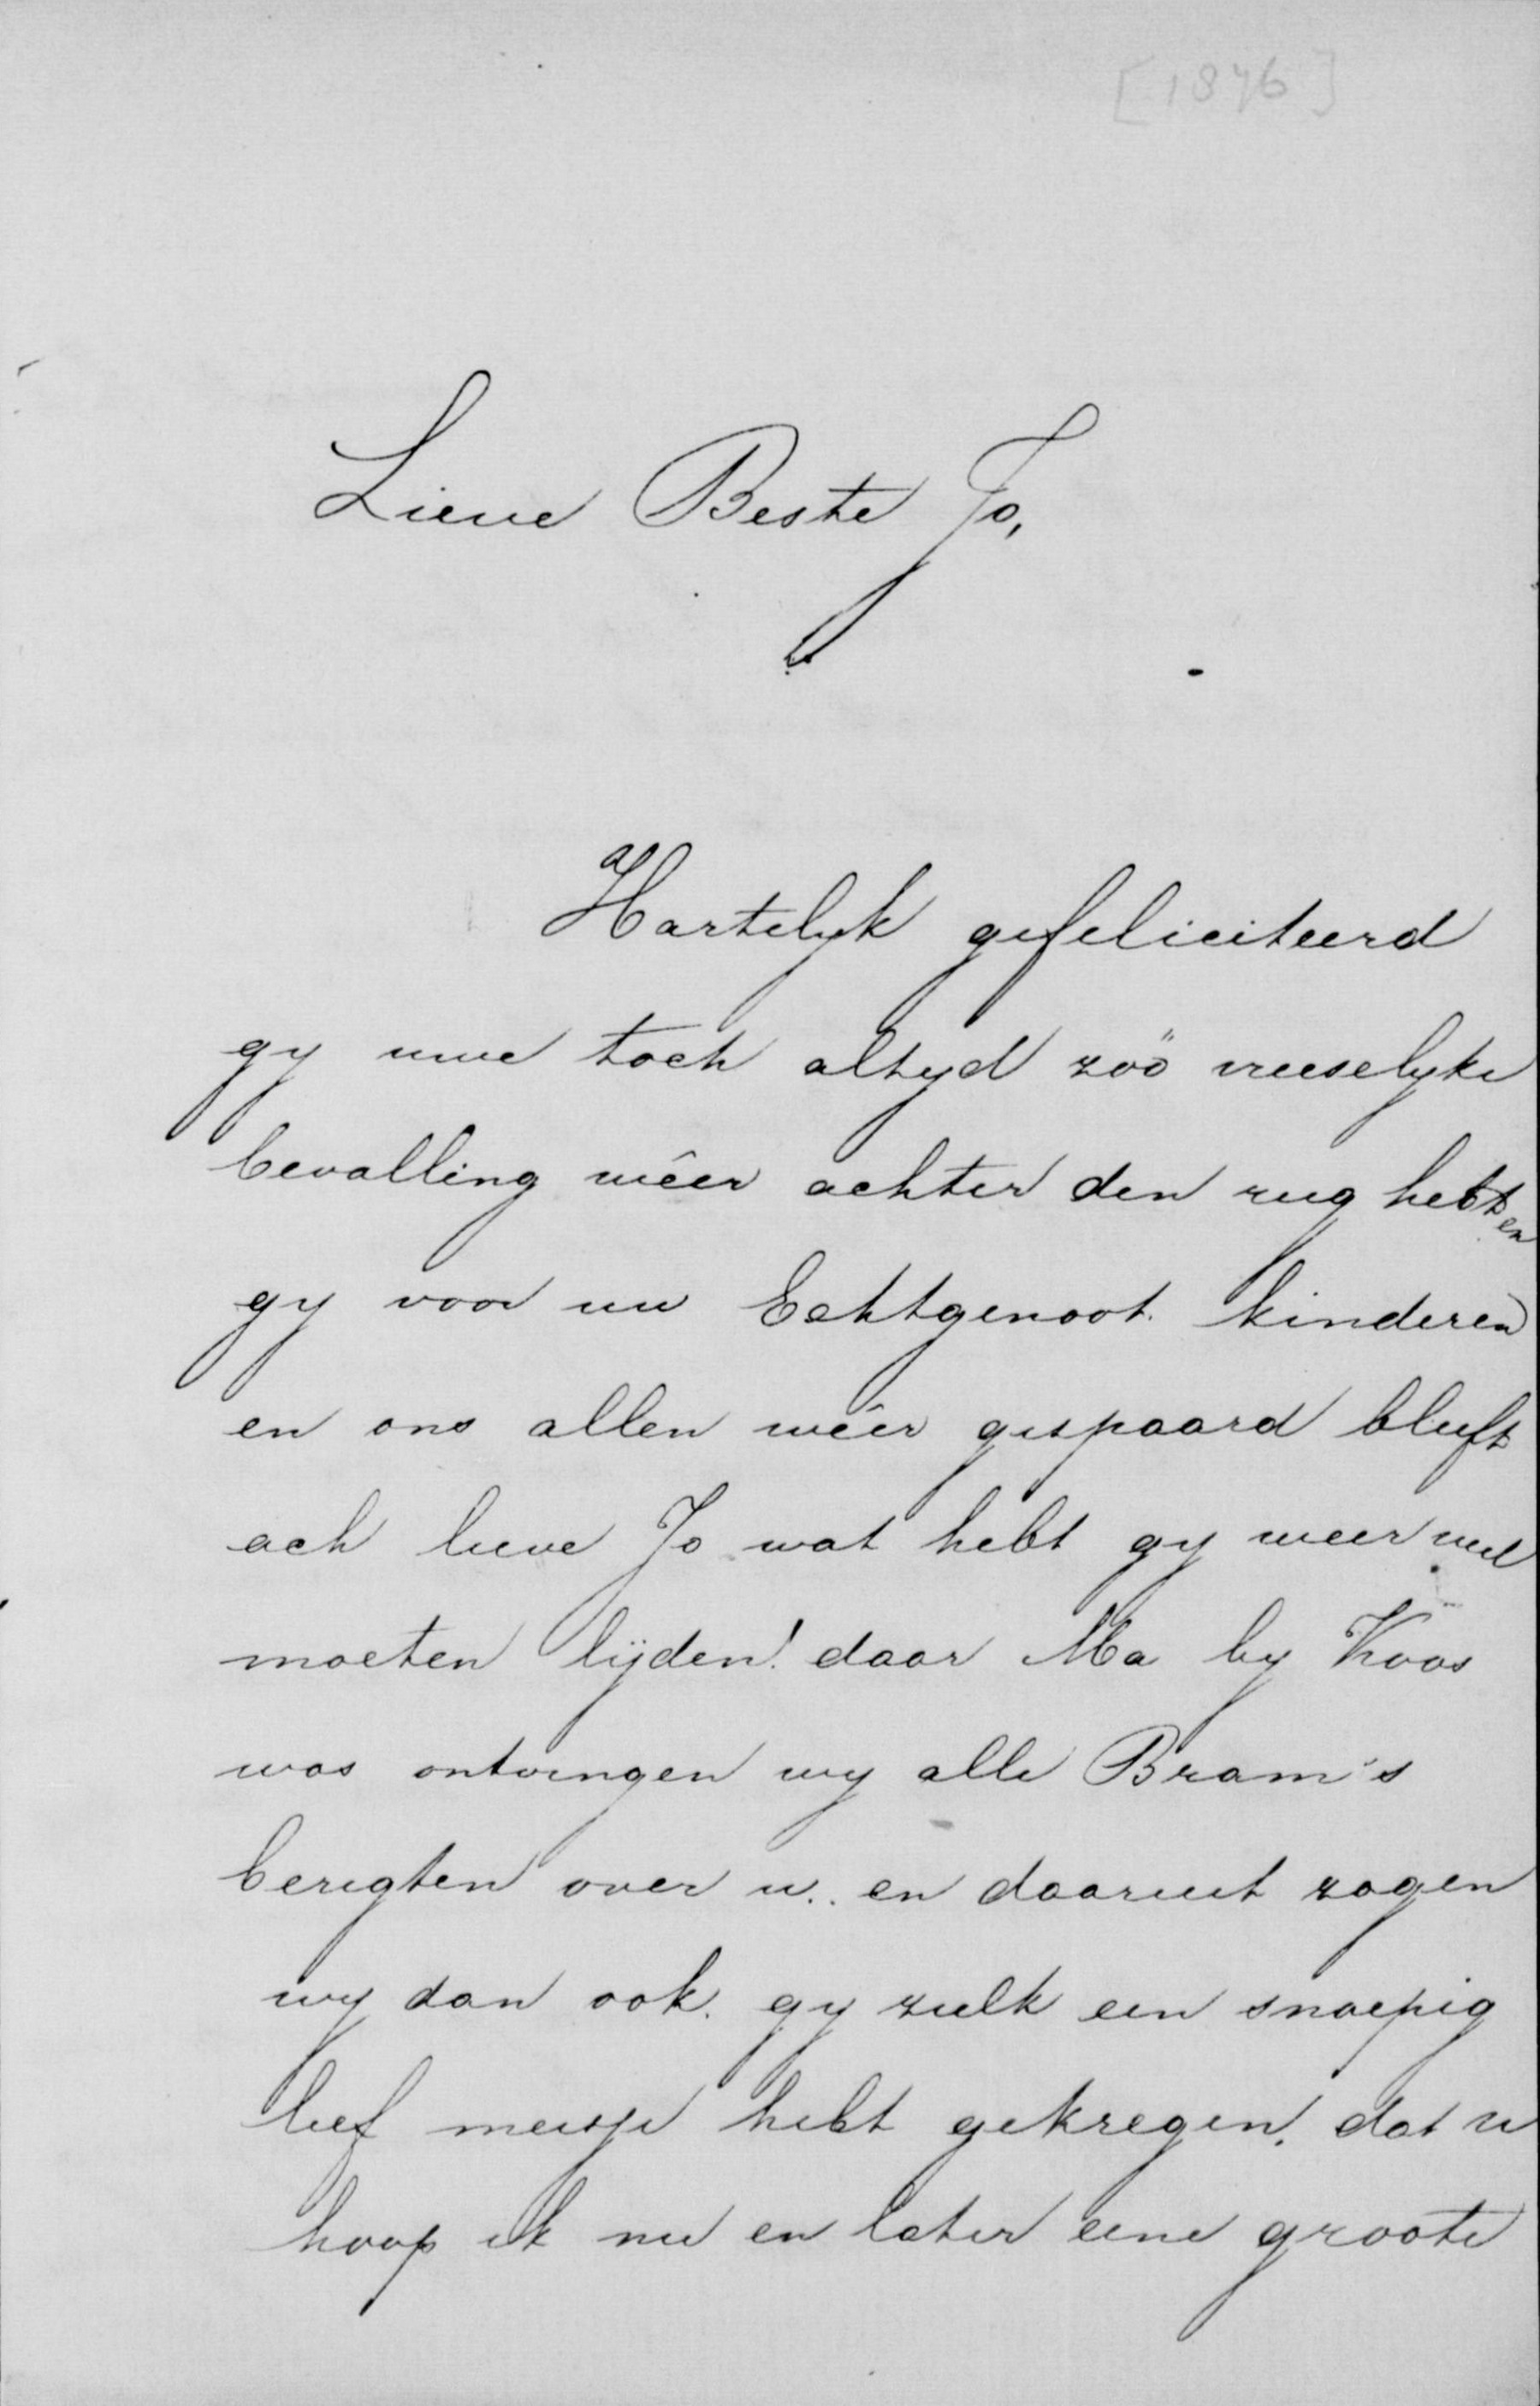 [1876]
Lieve Beste Jo,
Hartelyk gefeliciteerd
gy uwe toch altyd zoo vreeselyke
bevalling wêer achter den rug hebt en
gy voor uw Echtgenoot kinderen
en ons allen wêer gespaard bleeft
ach lieve Jo wat hebt gy weer veel
moeten lijden! daar Ma by Koos
was ontvingen wy alle Bram's
berigten over u.. en daaruit zagen
wy dan ook. gy zulk een snoepig
lief meisje hebt gekregen. dat u
hoop ik nu en later eene groote